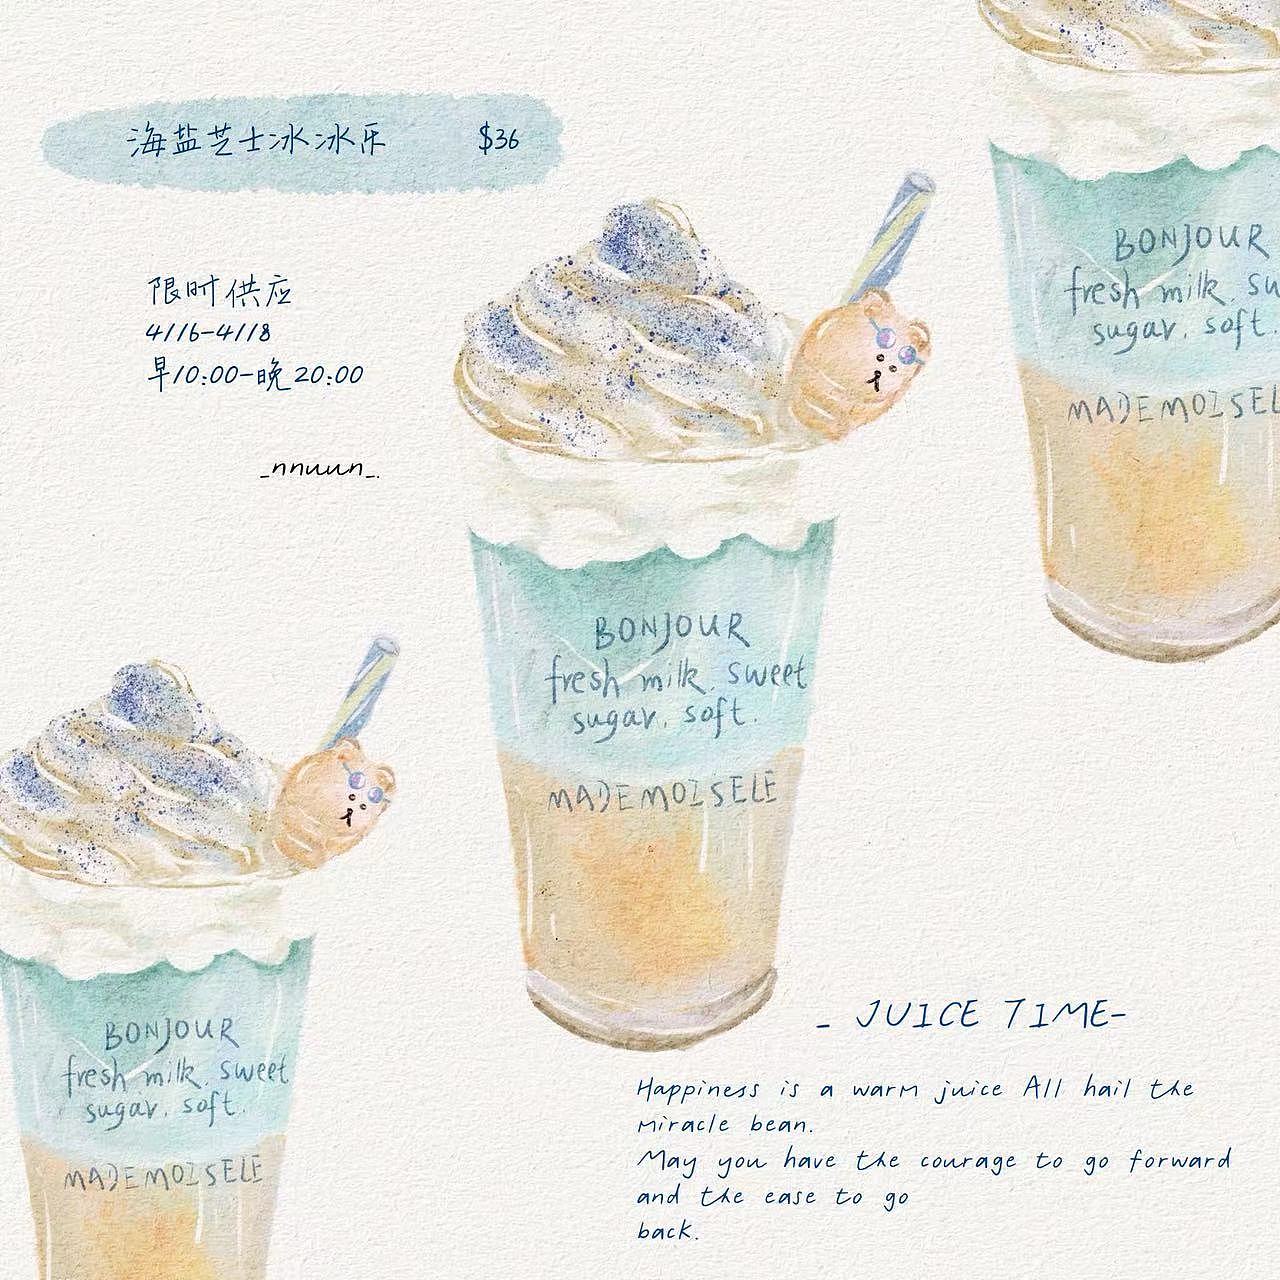 海盐芝士冰冰乐 $36
限时供应
4/16-4/18
早10:00-晚20:00
_nnuun_.
BONJOUR
fresh milk. su
sugar. soft.
MADEMOISEL
BONJOUR
fresh milk. sweet
sugar. soft.
MADEMOISELE
BONJOUR
fresh milk. sweet
sugar. soft.
MADEMOISELE
_ JUICE TIME-
Happiness is a warm juice All hail the
miracle bean.
May you have the courage to go forward
and the ease to go
back.